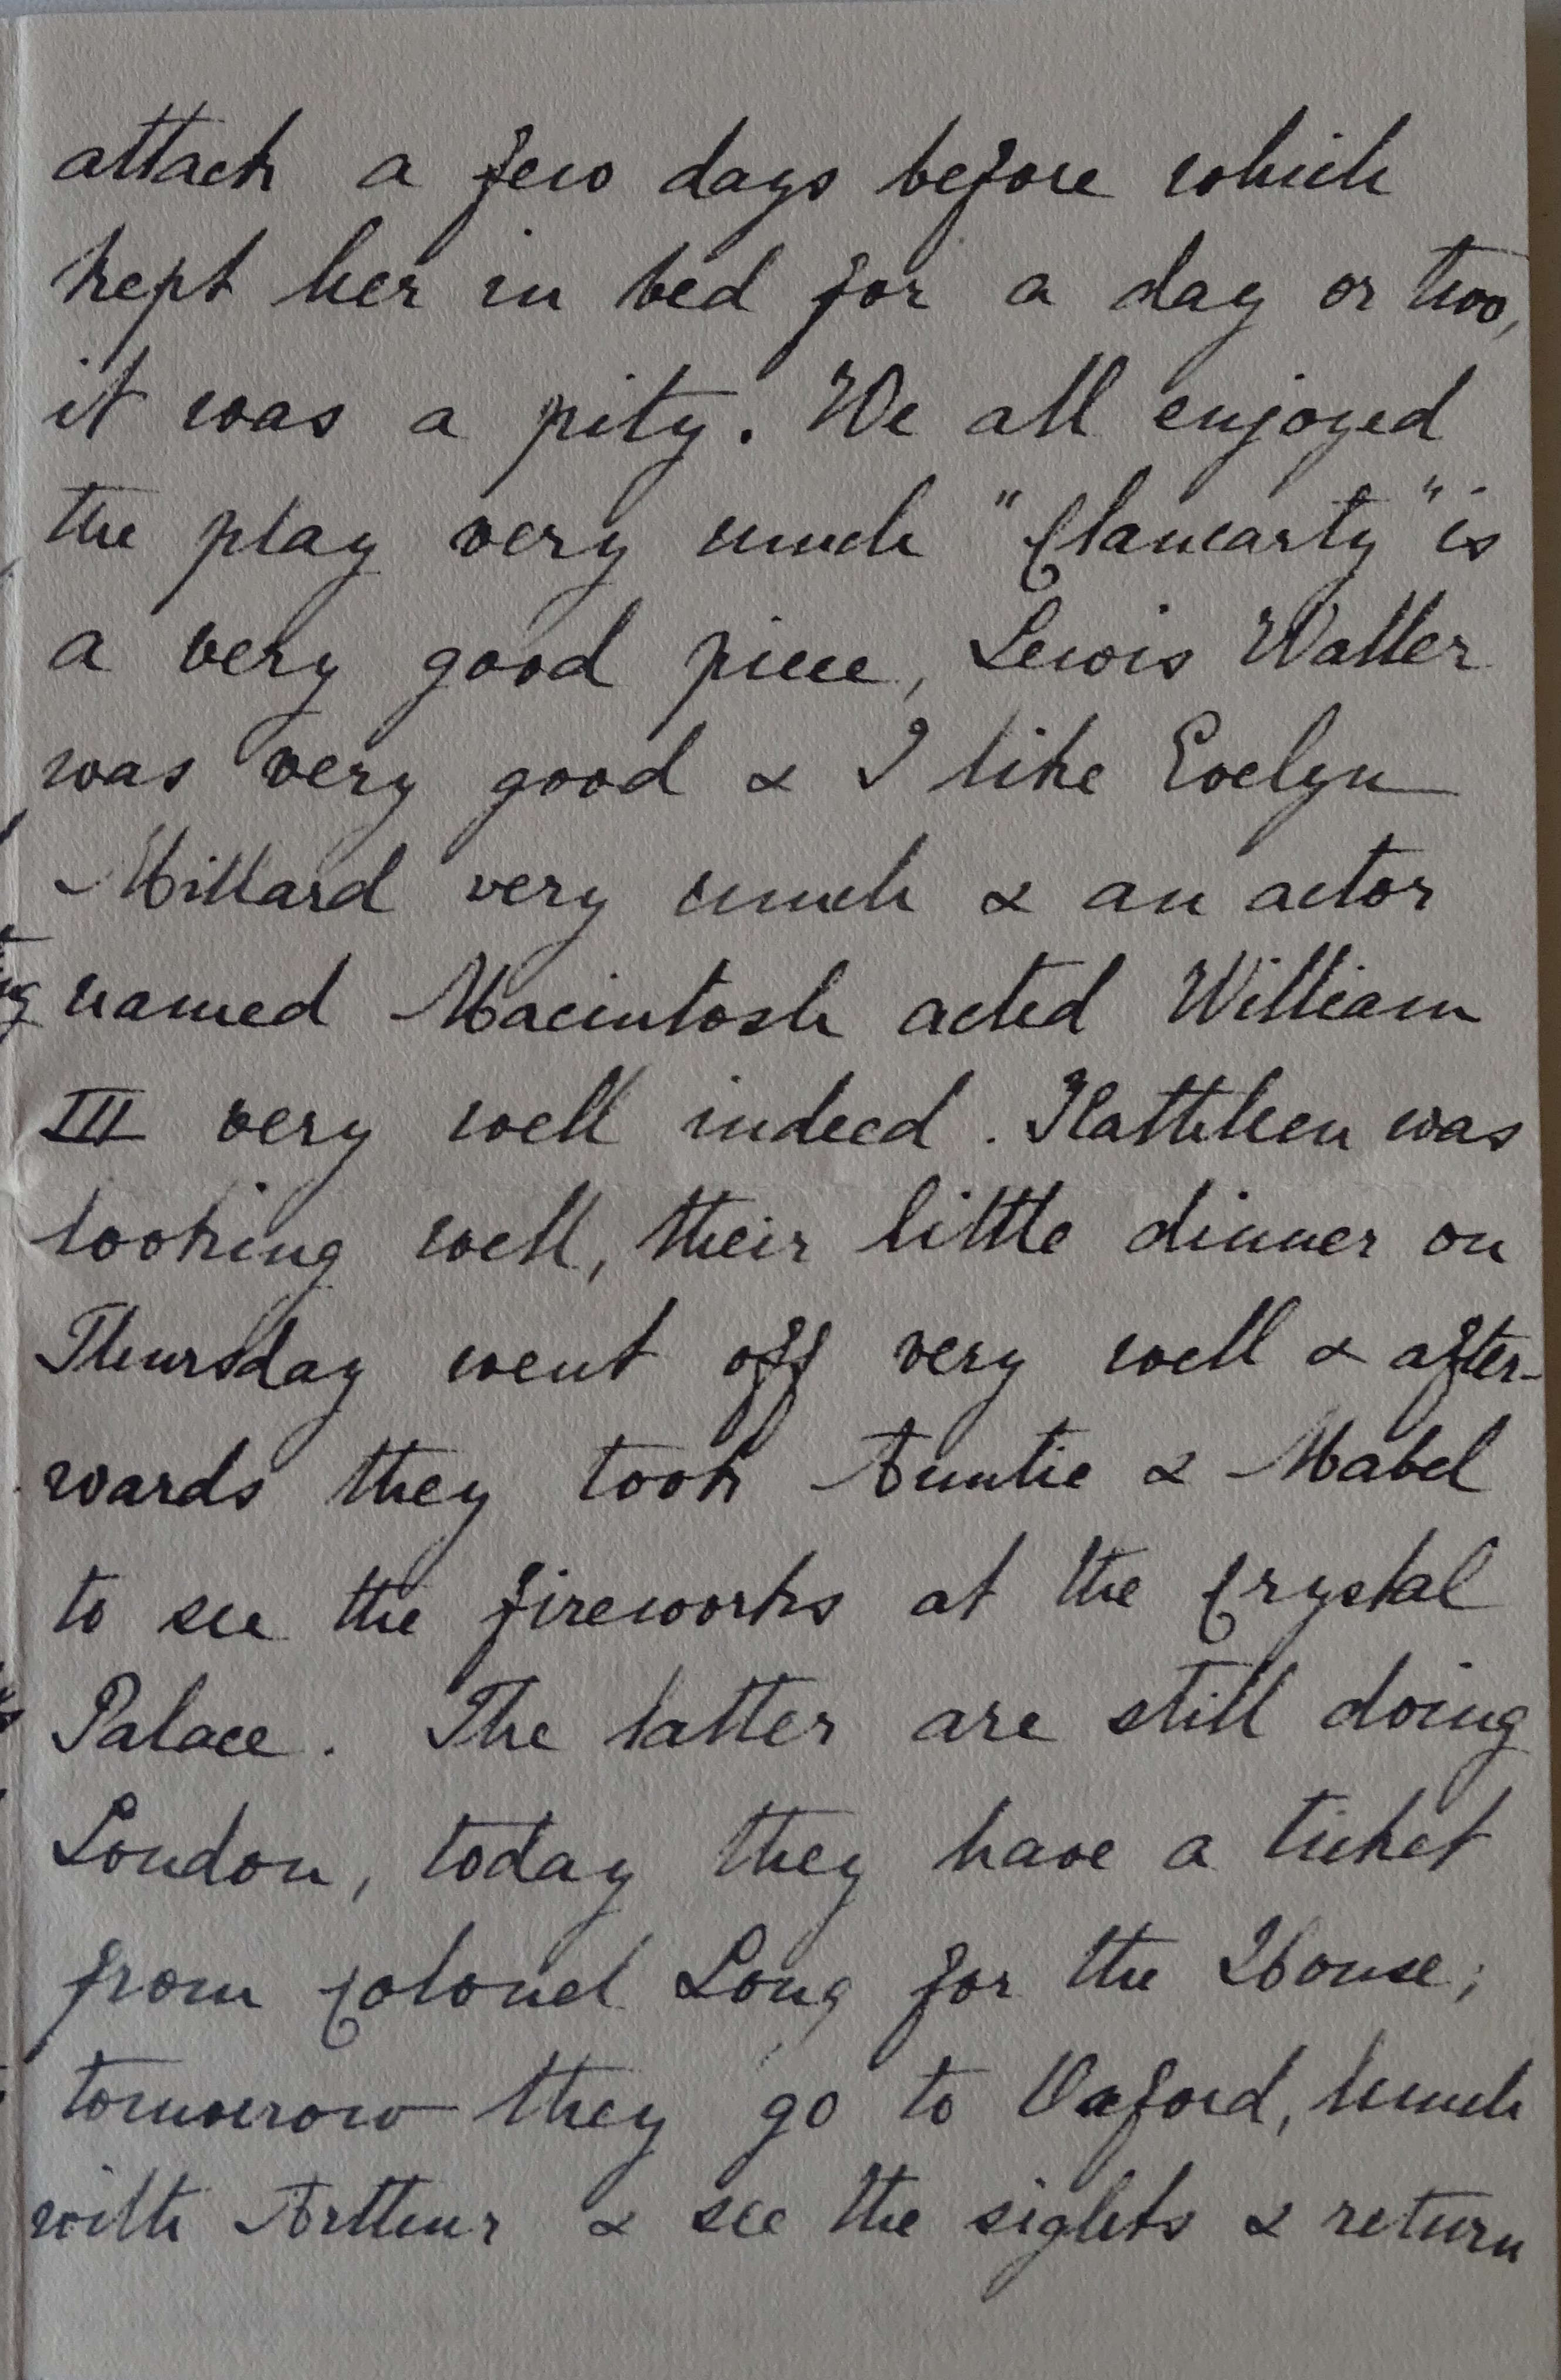 attack a few days before which
kept her in bed for a day or two,
it was a pity. We all enjoyed
the play very much "Clancarty" is
a very good piece, Lewis Waller
was very good & I like Evelyn
Millard very much & an actor
named Macintosh acted William
III very well indeed. Kathleen was
looking well, their little dinner on
Thursday went off very well & after-
wards they took Auntie & Mabel
to see the fireworks at the Crystal
Palace. The latter are still doing
London, today they have a ticket
from Colonel Long for the House;
tomorrow they go to Oxford, lunch
with Arthur & see the sights & return